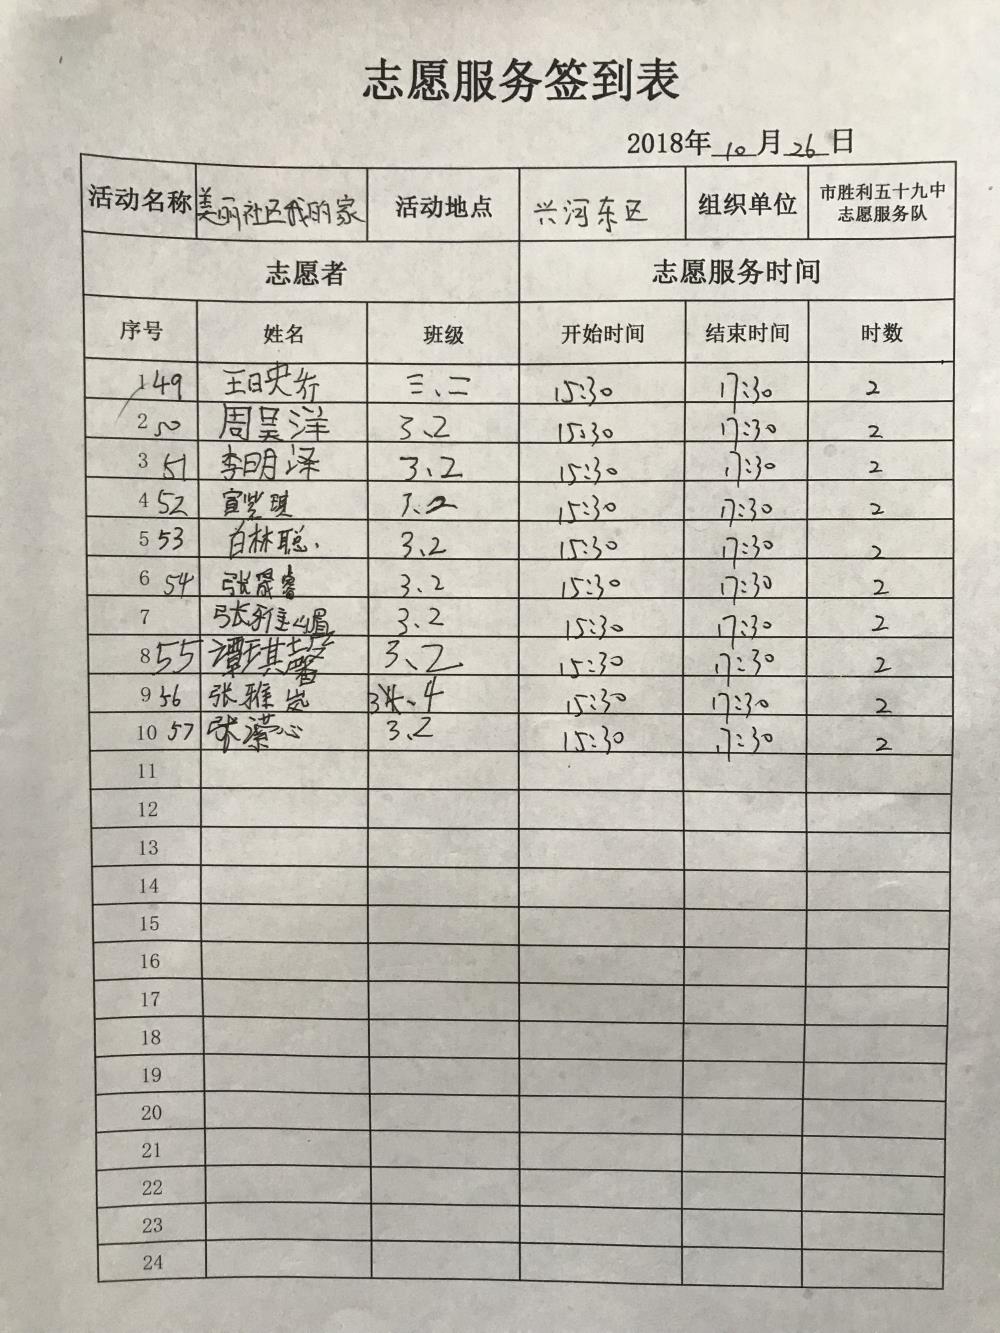 志愿服务签到表
2018年 10 月 26 日
活动名称 美丽社区我的家 活动地点 兴河东区 组织单位 市胜利五十九中
志愿服务队
志愿者 志愿服务时间
序号 姓名 班级 开始时间 结束时间 时数
1 49 三、二 15:30 17:30 2
2 50 周昊洋 3、2 15:30 17:30 2
3 51 李明泽 3、2 15:30 17:30 2
4 52 3、2 15:30 17:30 2
5 53 白林聪 3、2 15:30 17:30 2
6 54 张晟睿 3、2 15:30 17:30 2
7 张雅嵋 3、2 15:30 17:30 2
8 55 谭琪馨 3、2 15:30 17:30 2
9 56 张雅岚 、4 15:30 17:30 2
10 57 张潆心 3、2 15:30 17:30 2
11
12
13
14
15
16
17
18
19
20
21
22
23
24